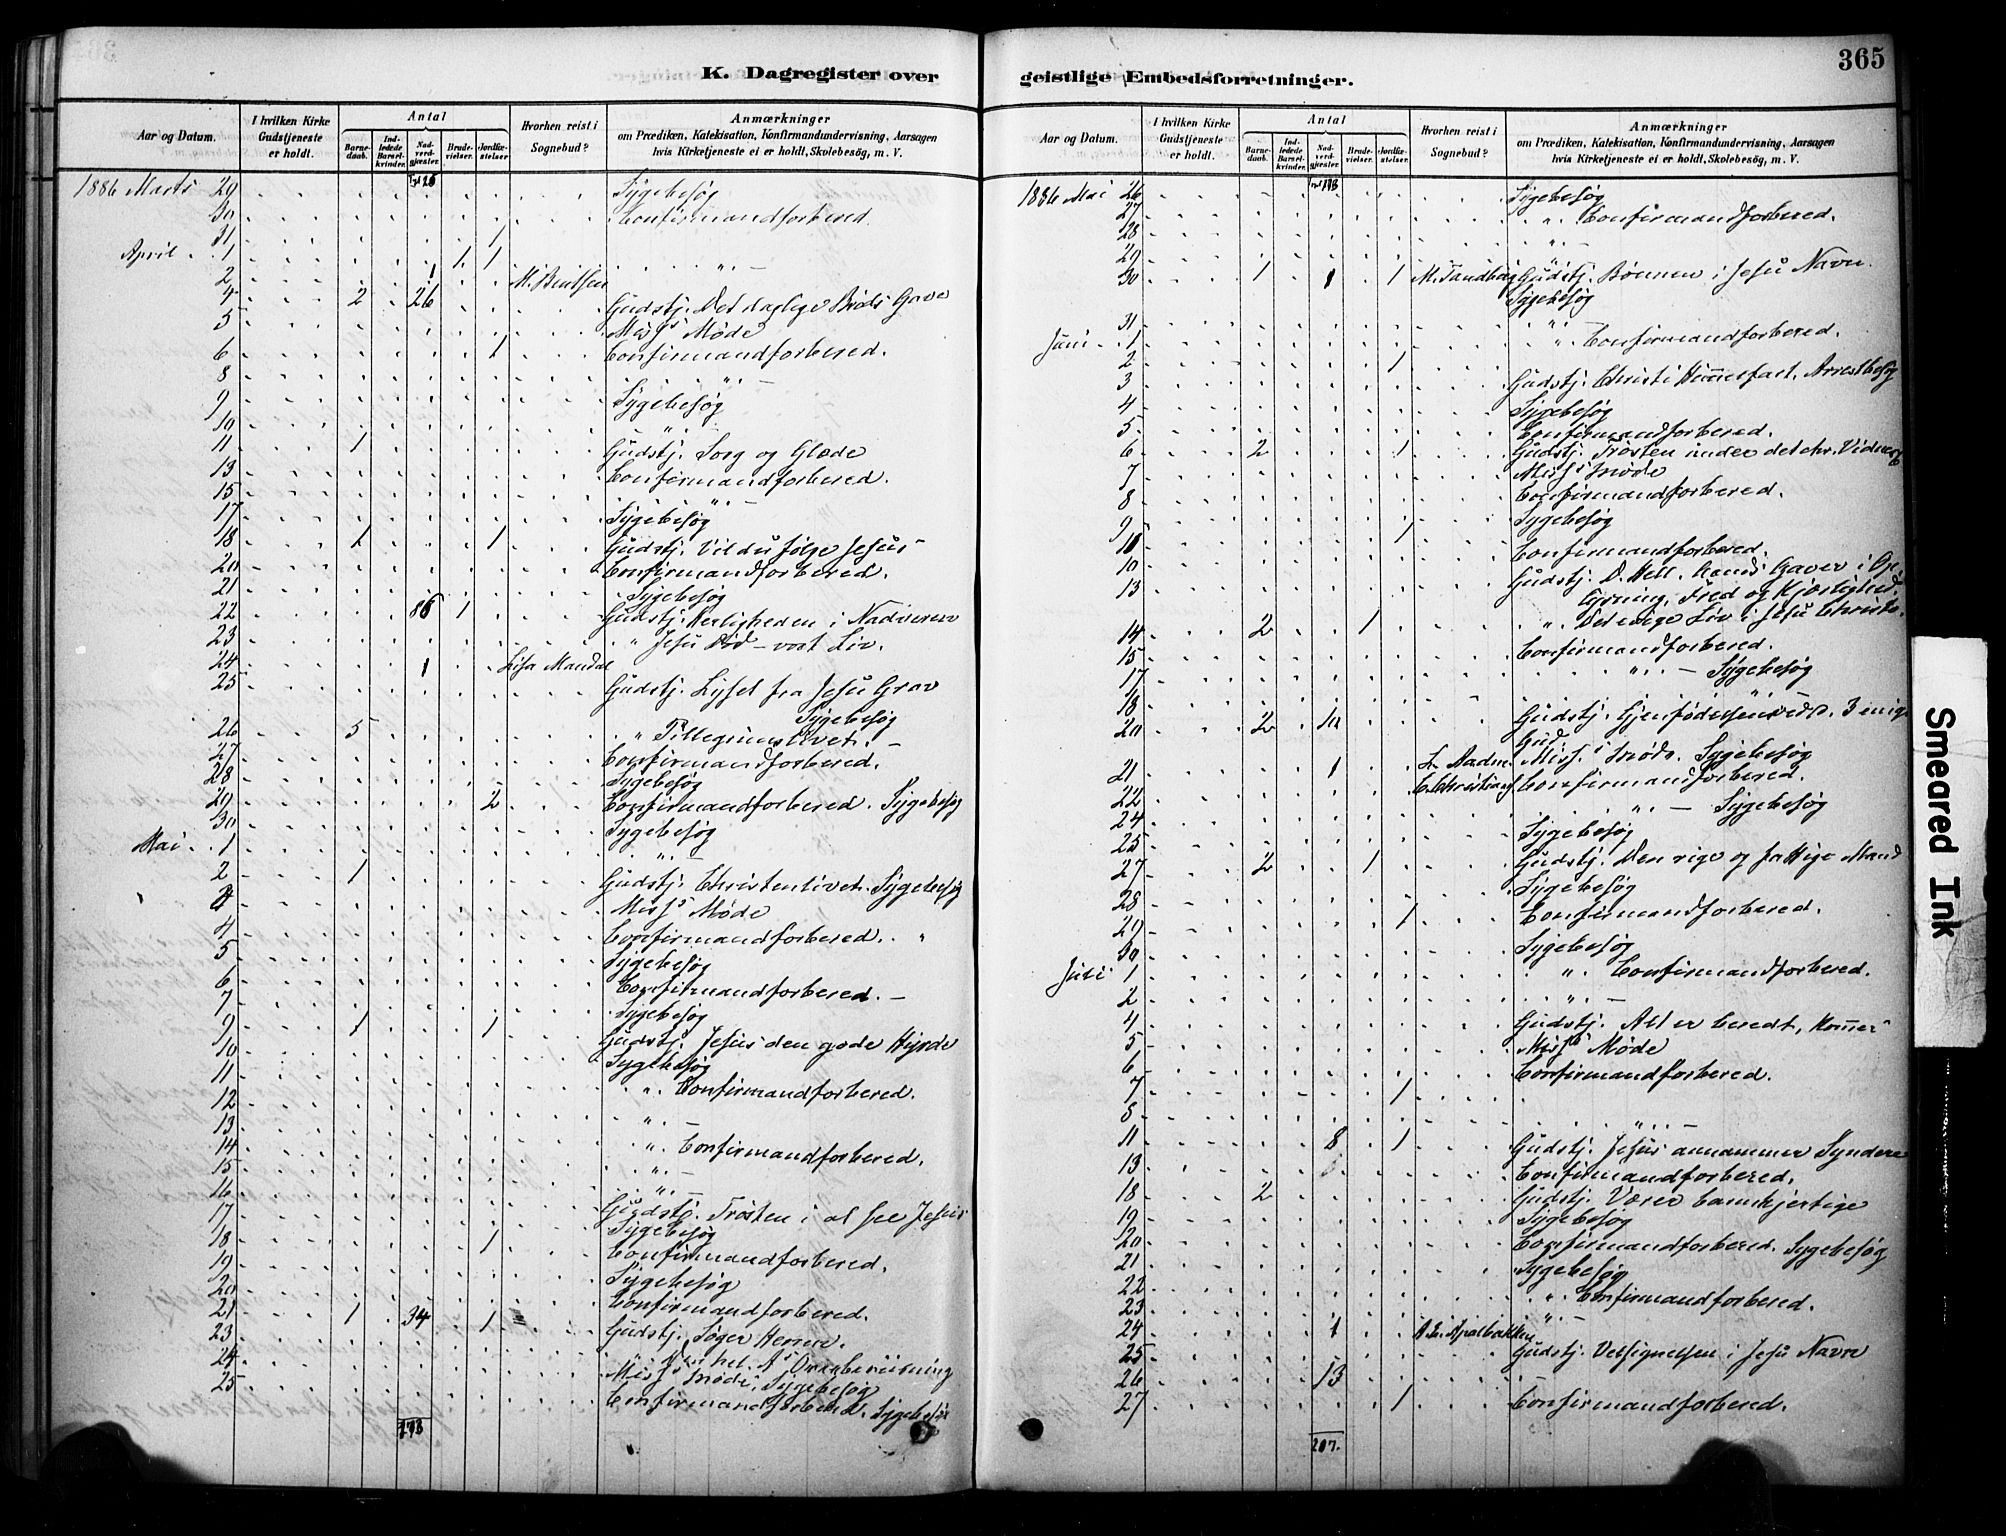 365
K. Dagregister over
geistlige Embedsforretninger.
Aar og Datum.
I hvilken Kirke Gudstjeneste er holdt.
Antal
Barnedaab.
Indledede Barselkvinder.
Nadverdgjæster.
Brudevielser.
Jordfæstelser.
Hvorhen reist i Sognebud?
Anmærkninger
om Prædiken, Katekisation, Konfirmandundervisning, Aarsagen
hvis Kirketjeneste ei er holdt, Skolebesög, m. V.
1886 Marts 29 Sygebesøg
30 Confirmandforbered.
31 1
April 1 1 1 " —
2 1 M. Bentsen
4 2 26 Gudstj. Det daglige Brøds Gave
5 Miss.s Møde
6 1 Confirmandforbered.
8 " —
9 Sygebesøg
10 "
11 1 Gudstj. Sorg og Glæde
13 Confirmandforbered.
15 " —
17 Sygebesøg
18 1 1 Gudstj. Vil du følge Jesus
20 Confirmandforbered.
21 Sygebesøg
22 1 Gudstj. Herligheden i Nadveren
23 " Jesu Død – vort Liv.
24 1 Lisa Mandal
25 Gudstj. Lyset fra Jesu Grav
Sygebesøg
26 5 " Pillegrimslivet. —
27 Confirmandforbered.
28 Sygebesøg
29 2 Confirmandforbered. Sygebesøg
30 Sygebesøg
Mai 1 " —
2 1 Gudstj. Christenlivet. Sygebesøg
Miss.s Møde
4 Confirmandforbered. "
5 Sygebesøg
6 Confirmandforbered. —
7 Sygebesøg
9 1 1 Gudstj. Jesus den gode Hyrde
10 Sygebesøg
11 " Confirmandforbered.
12 " —
13
14 " Confirmandforbered.
15 " —
16 Gudstj. Trøsten i at see Jesus
17 Sygebesøg
18 1 Confirmandforbered.
19 Sygebesøg
20 Confirmandforbered.
21 1 34 1 Gudstj. Søger Herren.
23
24 Miss.s Møde, Sygebesøg
25 Confirmandforbered. Sygebesøg
Aar og Datum.
I hvilken Kirke Gudstjeneste er holdt.
Antal
Barnedaab.
Indledede Barselkvinder.
Nadverdgjæster.
Brudevielser.
Jordfæstelser.
Hvorhen reist i Sognebud?
Anmærkninger
om Prædiken, Katekisation, Konfirmandundervisning, Aarsagen
hvis Kirketjeneste ei er holdt, Skolebesög, m. V.
1886 Mai 26 Sygebesøg
27 " Confirmandforbered.
28 " —
29 "
30 1 1 1 M. Tandberg Gudstj. Bønnen i Jesu Navn.
Sygebesøg
31 " Confirmandforbered.
Juni 1
2 1
3 Gudstj. Christi Himmelfart. Arrestbesøg
4 Sygebesøg
5 Confirmandforbered.
6 2 1 Gudstj. Trøsten under det chr. Vidnesb
7 Miss.s Møde
8 Confirmandforbered.
9 Sygebesøg
1
Confirmandforbered.
10
13 Gudstj. D. Hell. Aands Gaver i
Fred og Kjærlighed.
14 2 1 " Det evige Liv i Jesu Christo.
15 Confirmandforbered.
17 " — Sygebesøg
18
20 2 Gudstj. Gjenfødelsen ved d. 3 enige
Gud
21 1 Miss.s Møde. Sygebesøg
22 Confirmandforbered.
24 " — Sygebesøg
25 Sygebesøg
27 2 1 Gudstj. Den rige og fattige Mand
28 Sygebesøg
29 1 Confirmandforbered.
30 Sygebesøg
Juli 1 " Confirmandforbered.
2 " —
4 Gudstj. Alt er beredt, Kommer
5 Miss.s Møde
6 Confirmandforbered.
7 1
8 " —
11 8 1 Gudstj. Jesus annammer Syndere
13 Confirmandforbered.
18 2 Gudstj. Værer barmhjertige
19 Sygebesøg
20 Confirmandforbered. Sygebesøg
21 Sygebesøg
22 " Confirmandforbered.
23 " —
24 1
25 Gudstj. Velsignelsen i Jesu Navn
26 13
27 1 Confirmandforbered.
207.
Smeared Ink